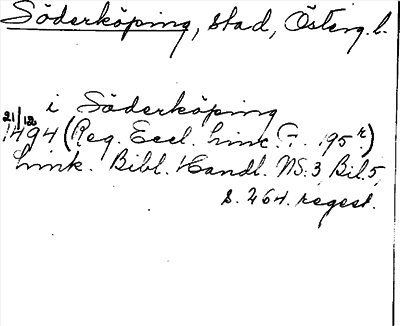 Söderköping, stad, Österg. l.
i Söderköping
21/12
1494 (Reg. Eccl. Linc. F. 195 r.)
Link. Bibl. Handl. NS:3, Bil. 5,
s. 264. regest.